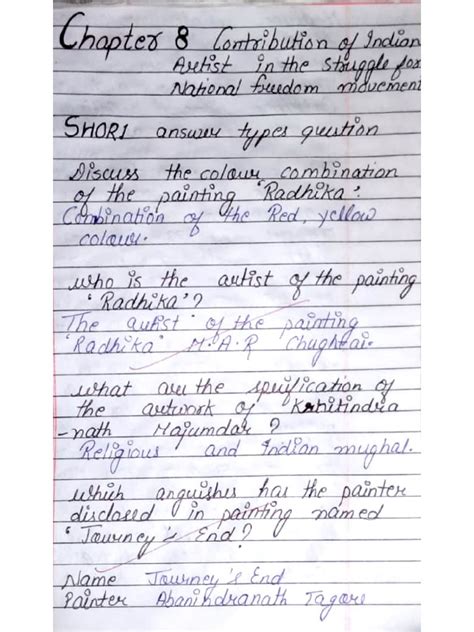 Chapter 8 Contribution of Indian
Artist in the Struggle for
National freedom movement
SHORT answer types question
Discuss the colour combination
of the painting 'Radhika'.
Combination of the Red, yellow
colour.
who is the artist of the painting
'Radhika'?
The autist of the painting
'Radhika' M.A.R Chughtai.
what are the specification of
the artwork of Kshitindra
-nath Majumdar?
Religious and Indian mughal.
which anguishes has the painter
disclosed in painting named
'Journey's End?
Name Journey's End
Painter Abanindranath Tagore